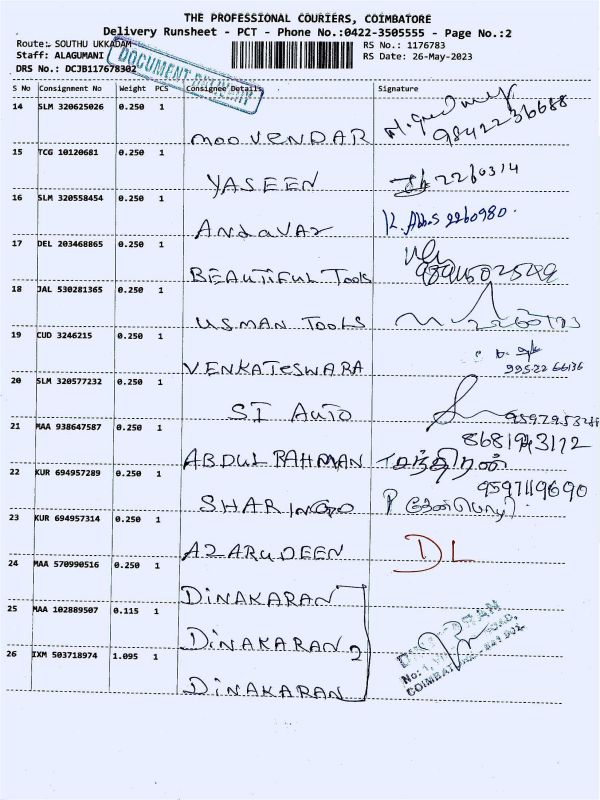 THE PROFESSIONAL COURIERS, COIMBATORE
Delivery Runsheet - PCT - Phone No.:0422-3505555 - Page No.:2
Route:- SOUTHU UKKADAM RS No.: 1176783
Staff: ALAGUMANI RS Date: 26-May-2023
DRS No.: DCJB117678302
DOCUMENT DELIVERY
S No Consignment No Weight PCS Consignee Details Signature
14 SLM 320625026 0.250 1
MOOVENDAR 9842236688
15 TCG 10120681 0.250 1
YASEEN 2260314
16 SLM 320558454 0.250 1
ANDAVAR K. Abbas 2260980.
17 DEL 203468865 0.250 1
BEAUTIFUL TOOLS
18 JAL 530281365 0.250 1
USMAN TOOLS
19 CUD 3246215 0.250 1
VENKATESWARA 99522 66136
20 SLM 320577232 0.250 1
SI AUTO 9597953288
21 MAA 938647587 0.250 1 8681943112
ABDUL RAHMAN சந்திரன்
22 KUR 694957289 0.250 1 9597119690
P தேன்மொழி
23 KUR 694957314 0.250 1
AZARUDEEN DL
24 MAA 570990516 0.250 1
DINAKARAN
25 MAA 102889507 0.115 1
DINAKARAN 2
26 IXM 503718974 1.095 1
No: 1, ROAD,
COIMBATORE
DINAKARAN